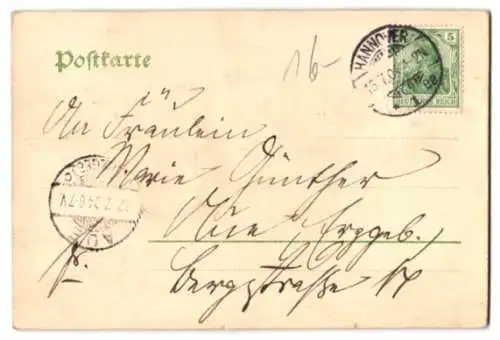 Postkarte
16-
HANNOVER
5
DEUTSCHES REICH
An Fräulein
Marie Günther
Aue Erzgeb.
Bergstraße
Fr.
AUE